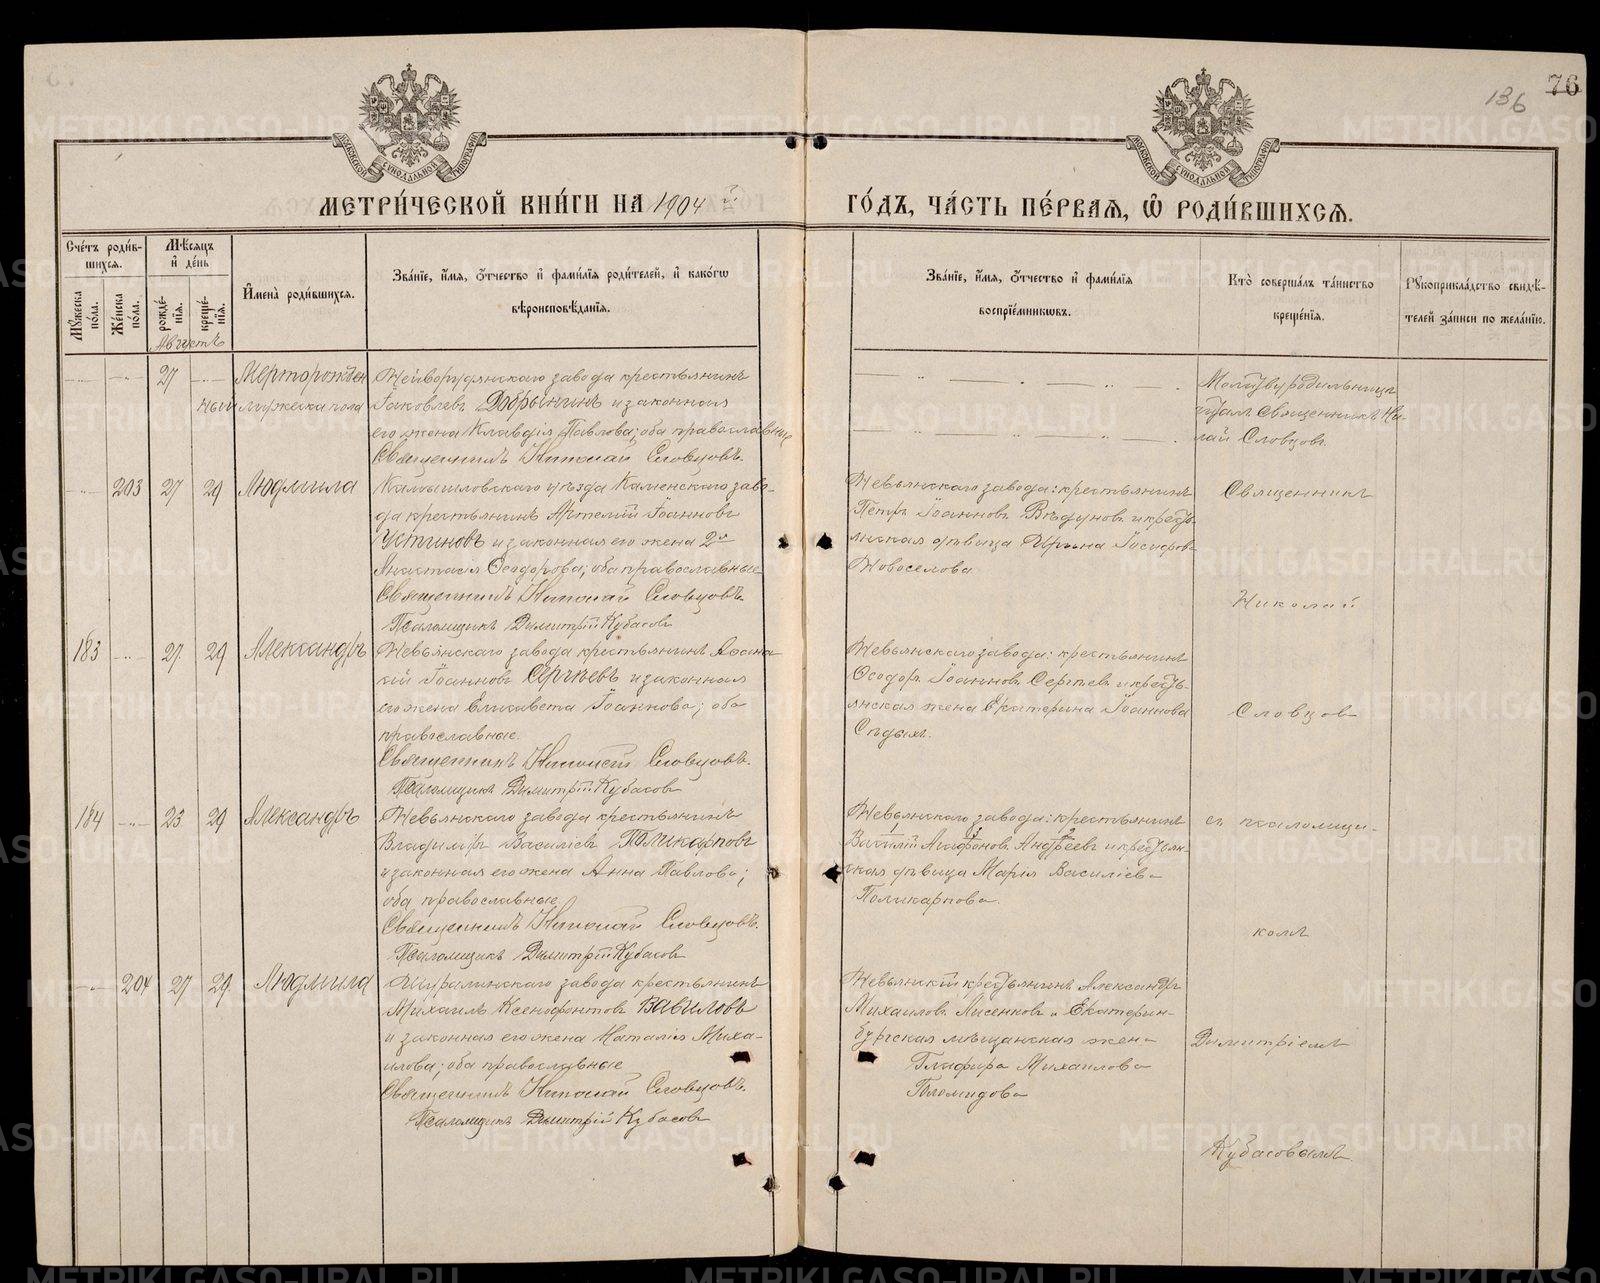 136
76
МЕТРИ́ЧЕСКОЙ КНИ́ГИ НА 1904 й.
ГО́ДЪ, ЧА́СТЬ ПЕ́РВАѦ, Ѡ РОДИ́ВШИХСѦ.
Сче́тъ роди́в-
шихсѧ.
Мꙋ́жеска по́ла.
Же́нска по́ла.
Мѣ́сяцъ и҆ де́нь
рожде́-
нїѧ.
креще́-
нїѧ.
Августъ
И҆мена̀ роди́вшихсѧ.
Зва́нїе, и҆́мѧ, ѻ҆́тчество и҆ фами́лїѧ роди́телей, и҆ како́гѡ
вѣроисповѣ́данїѧ.
Зва́нїе, и҆́мѧ, ѻ҆́тчество и҆ фами́лїѧ
воспрїе́мникѡвъ.
Кто̀ соверша́лъ та́инство
креще́нїѧ.
Рꙋкоприкла́дство свидѣ́-
телей за́писи по жела́нїю.
27
Мерторожден
ный мужеска пола
завода крестьянинъ
Іаковлевъ Добрынинъ и законная
его жена Клавдія Павлова; оба православные
Священникъ Николай Словцовъ.
Молитву родильницѣ
читалъ Священникъ Ни
лай Словцовъ
203 27 29 Людмила
Камышловскаго уѣзда Каменскаго заво-
да крестьянинъ Артемій Іоанновъ
Устиновъ и законная его жена 2я
Анастасія Ѳеодорова; оба православные
Священникъ Николай Словцовъ.
Псаломщикъ Димитрій Кубасовъ
Невьянскаго завода: крестьянинъ
Петръ Іоанновъ Вѣдуновъ и кресть-
янская дѣвица Ирина Іосифова
Новоселова
Священникъ
Николай
183 27 29 Александръ
Невьянскаго завода крестьянинъ
Іоанновъ Сергѣевъ и законная
его жена Елисавета Іоаннова; оба
православные.
Священникъ Николай Словцовъ.
Псаломщикъ Димитрій Кубасовъ
Невьянскаго завода: крестьянинъ
Ѳеодоръ Іоанновъ Сергѣевъ и кресть-
янская жена Екатерина Іоаннова
Сѣдыхъ.
Словцов
184 23 29 Александръ
Невьянскаго завода крестьянинъ
Владимиръ Василіевъ Поликарповъ
и законная его жена Анна Павлова;
оба православные
Священникъ Николай Словцовъ.
Псаломщикъ Димитрій Кубасовъ
Невьянскаго завода: крестьянинъ
1 3 2
Василій Агафоновъ Андреевъ и крестьян-
ская дѣвица Марія Василіева
Поликарпова.
съ псаломщи-
комъ
204 27 29 Людмила
Шуралинскаго завода крестьянинъ
Михаилъ Ксенофонтовъ Вавиловъ
и законная его жена Наталія Миха-
илова; оба православные
Священникъ Николай Словцовъ.
Псаломщикъ Димитрій Кубасовъ
Невьянскій крестьянинъ Александръ
Михаиловъ Лисенковъ и Екатерин-
бургская мѣщанская жена
Глафира Михаилова
Голомидова
Димитріемъ
Кубасовымъ.
METRIKI.GASO-URAL.RU